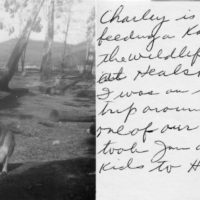 Charley is
feeding a Ka
the wildlife
at Heals
I was an
trip aroun
one of our
took Jan a
kids to H